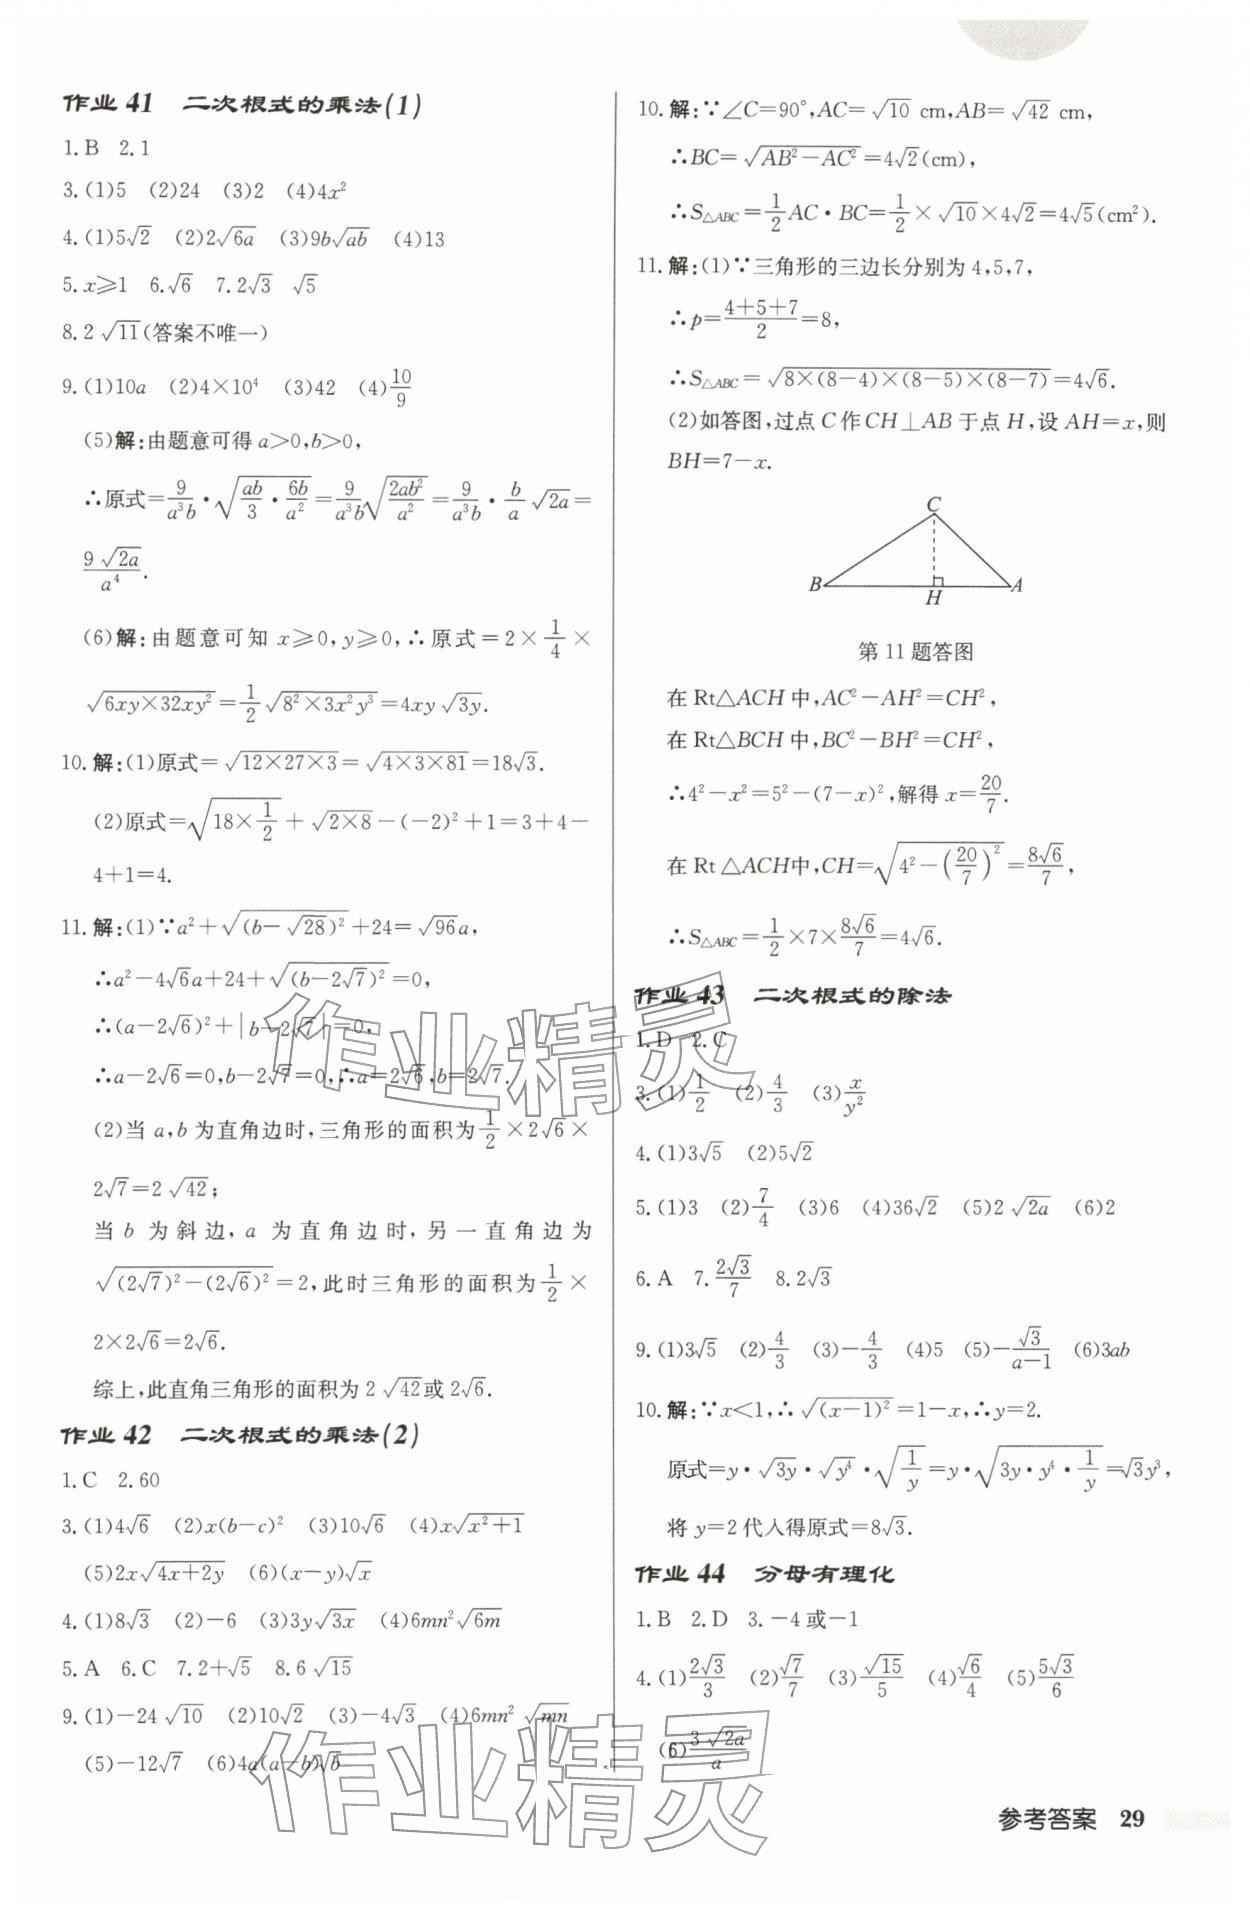 作业 41 二次根式的乘法(1)
1.B 2.1
3.(1)5 (2)24 (3)2 (4)4x²
4.(1)5√2 (2)2√(6a) (3)9b√(ab) (4)13
5.x⩾1 6.√6 7.2√3 √5
8.2√11(答案不唯一)
9.(1)10a (2)4×10⁴ (3)42 (4)10/9
(5)解:由题意可得 a>0,b>0,
∴原式=9/(a³b)·√(ab/3·6b/a²)=9/(a³b)√(2ab²/a²)=9/(a³b)·b/a√(2a)=
9√(2a)/a⁴.
(6)解:由题意可知 x⩾0,y⩾0,∴原式=2×1/4×
√(6xy×32xy²)=1/2√(8²×3x²y³)=4xy√(3y).
10.解:(1)原式=√(12×27×3)=√(4×3×81)=18√3.
(2)原式=√(18×1/2)+√(2×8)-(-2)²+1=3+4-
4+1=4.
11.解:(1)∵a²+√((b-√28)²)+24=√96a,
∴a²-4√6a+24+√((b-2√7)²)=0,
∴(a-2√6)²+|b-2√7|=0,
∴a-2√6=0,b-2√7=0,∴a=2√6,b=2√7.
(2)当 a,b 为直角边时,三角形的面积为1/2×2√6×
2√7=2√42;
当 b 为斜边,a 为直角边时,另一直角边为
√((2√7)²-(2√6)²)=2,此时三角形的面积为1/2×
2×2√6=2√6.
综上,此直角三角形的面积为 2√42或2√6.
作业 42 二次根式的乘法(2)
1.C 2.60
3.(1)4√6 (2)x(b-c)² (3)10√6 (4)x√(x²+1)
(5)2x√(4x+2y) (6)(x-y)√x
4.(1)8√3 (2)-6 (3)3y√(3x) (4)6mn²√(6m)
5.A 6.C 7.2+√5 8.6√15
9.(1)-24√10 (2)10√2 (3)-4√3 (4)6mn²√(mn)
(5)-12√7 (6)4a(a-b)√b
10.解:∵∠C=90°,AC=√10 cm,AB=√42 cm,
∴BC=√(AB²-AC²)=4√2(cm),
∴S△ABC=1/2AC·BC=1/2×√10×4√2=4√5(cm²).
11.解:(1)∵三角形的三边长分别为 4,5,7,
∴p=(4+5+7)/2=8,
∴S△ABC=√(8×(8-4)×(8-5)×(8-7))=4√6.
(2)如答图,过点 C 作 CH⊥AB 于点 H,设 AH=x,则
BH=7-x.
C
B
H
A
第 11 题答图
在 Rt△ACH 中,AC²-AH²=CH²,
在 Rt△BCH 中,BC²-BH²=CH²,
∴4²-x²=5²-(7-x)²,解得 x=20/7.
在 Rt△ACH中,CH=√(4²-(20/7)²)=8√6/7,
∴S△ABC=1/2×7×8√6/7=4√6.
作业 43 二次根式的除法
1.D 2.C
3.(1)1/2 (2)4/3 (3)x/y²
4.(1)3√5 (2)5√2
5.(1)3 (2)7/4 (3)6 (4)36√2 (5)2√(2a) (6)2
6.A 7.2√3/7 8.2√3
9.(1)3√5 (2)4/3 (3)-4/3 (4)5 (5)-√3/(a-1) (6)3ab
10.解:∵x<1,∴√((x-1)²)=1-x,∴y=2.
原式=y·√(3y)·√(y⁴)·√(1/y)=y·√(3y·y⁴·1/y)=√3y³,
将 y=2 代入得原式=8√3.
作业 44 分母有理化
1.B 2.D 3.-4 或-1
4.(1)2√3/3 (2)√7/7 (3)√15/5 (4)√6/4 (5)5√3/6
(6)3√(2a)/a
参考答案 29
作业精灵
作业精灵